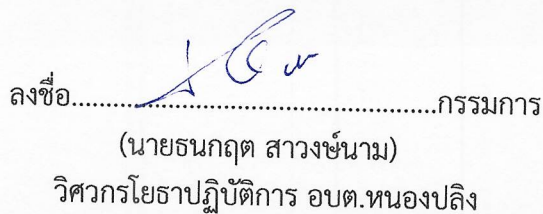 ลงชื่อ................................................กรรมการ
(นายธนกฤต สาวงษ์นาม)
วิศวกรโยธาปฏิบัติการ อบต.หนองปลิง